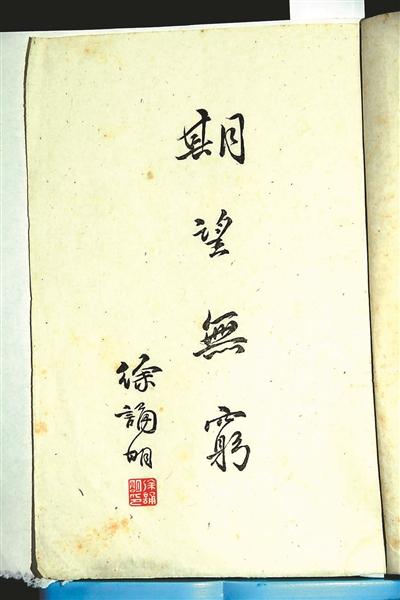 期望無窮
徐誦明
徐誦明印